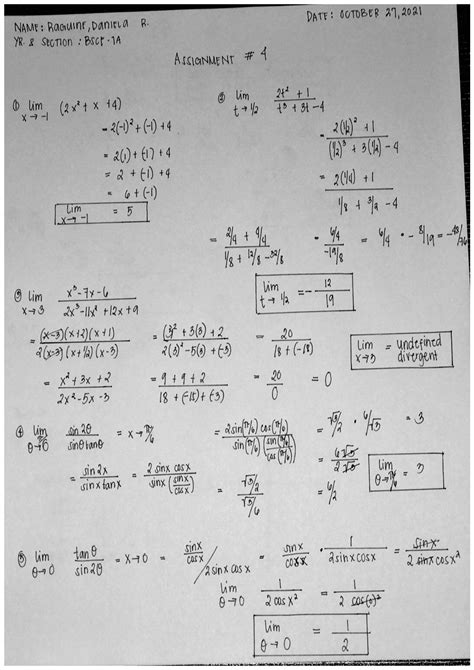 NAME: Raguine, Daniela R.
DATE: OCTOBER 27, 2021
YR & Section: BSCE-1A
ASSIGNMENT # 4
① lim x→-1 (2x² + x + 4)
= 2(-1)² + (-1) + 4
= 2(1) + (-1) + 4
= 2 + (-1) + 4
= 6 + (-1)
lim x→-1 = 5
② lim t→1/2 (2t² + 1)/(t³ + 3t - 4)
= (2(1/2)² + 1)/((1/2)³ + 3(1/2) - 4)
= (2(1/4) + 1)/(1/8 + 3/2 - 4)
= (2/4 + 4/4)/(1/8 + 12/8 - 32/8) = (6/4)/(-19/8) = 6/4 · - 8/19 = -48/76
lim t→1/2 = - 12/19
③ lim x→3 (x³-7x-6)/(2x³-11x²+12x+9)
= (x-3)(x+2)(x+1)/2(x-3)(x+1/2)(x-3) = ((3)²+3(3)+2)/(2(3)²-5(3)+(-3)) = 20/(18+(-18))
= (x²+3x+2)/(2x²-5x-3) = (9+9+2)/(18+(-15)+(-3)) = 20/0 = 0
lim x→3 = undefined divergent
④ lim θ→π/6 sin2θ/sinθtanθ = x→π/6 = 2sin(π/6)cos(π/6)/sin(π/6)(sin(π/6)/cos(π/6)) = √3/2 · 6/√3 = 3
= sin2x/sinxtanx = 2sinxcosx/sinx(sinx/cosx) = (√3/2)/(√3/6) = 6√3/2√3
= 6/2
lim θ→π/6 = 3
⑤ lim θ→0 tanθ/sin2θ = x→0 = sinx/cosx / 2sinxcosx = sinx/cosx · 1/2sinxcosx = sinx/2sinxcosx²
lim θ→0 1/2cosx² = 1/2cos(0)²
lim θ→0 = 1/2